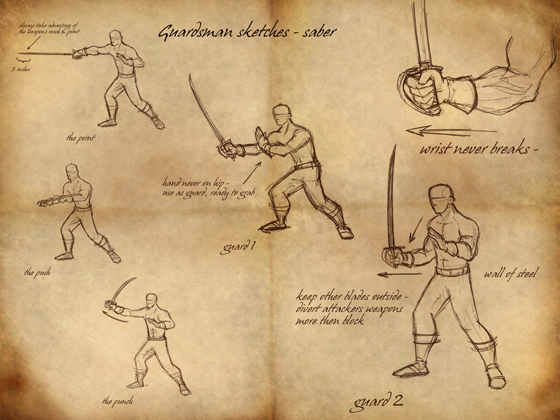 Guardsman sketches - saber
always take advantage of
the weapon's reach & point
3 inches
the point
wrist never breaks -
hand never on hip -
use as guard, ready to grab
guard 1
the push
wall of steel
keep other blades outside -
divert attackers weapons
more then block
the punch
guard 2